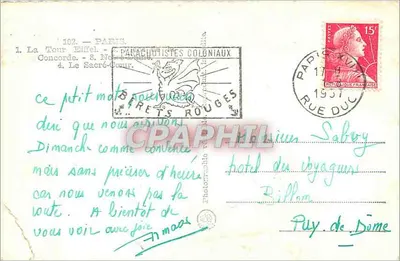 102. - PARIS
1. La Tour Eiffel. -
Concorde. - 3. No
4. Le Sacré-Cœur.
PARACHUTISTES COLONIAUX
BÉRETS ROUGES
PARIS
17
1957
RUE DUC
15F
CPARHIL.COM
ce ptit mot pour vous
dire que nous viendrons
Dimanche comme convenu
mais sans préciser d'heure
car nous venons par la
route. A bientôt de
vous voir avec joie
Monsieur Sabvy
hotel des voyageurs
Billom
Puy de Dôme